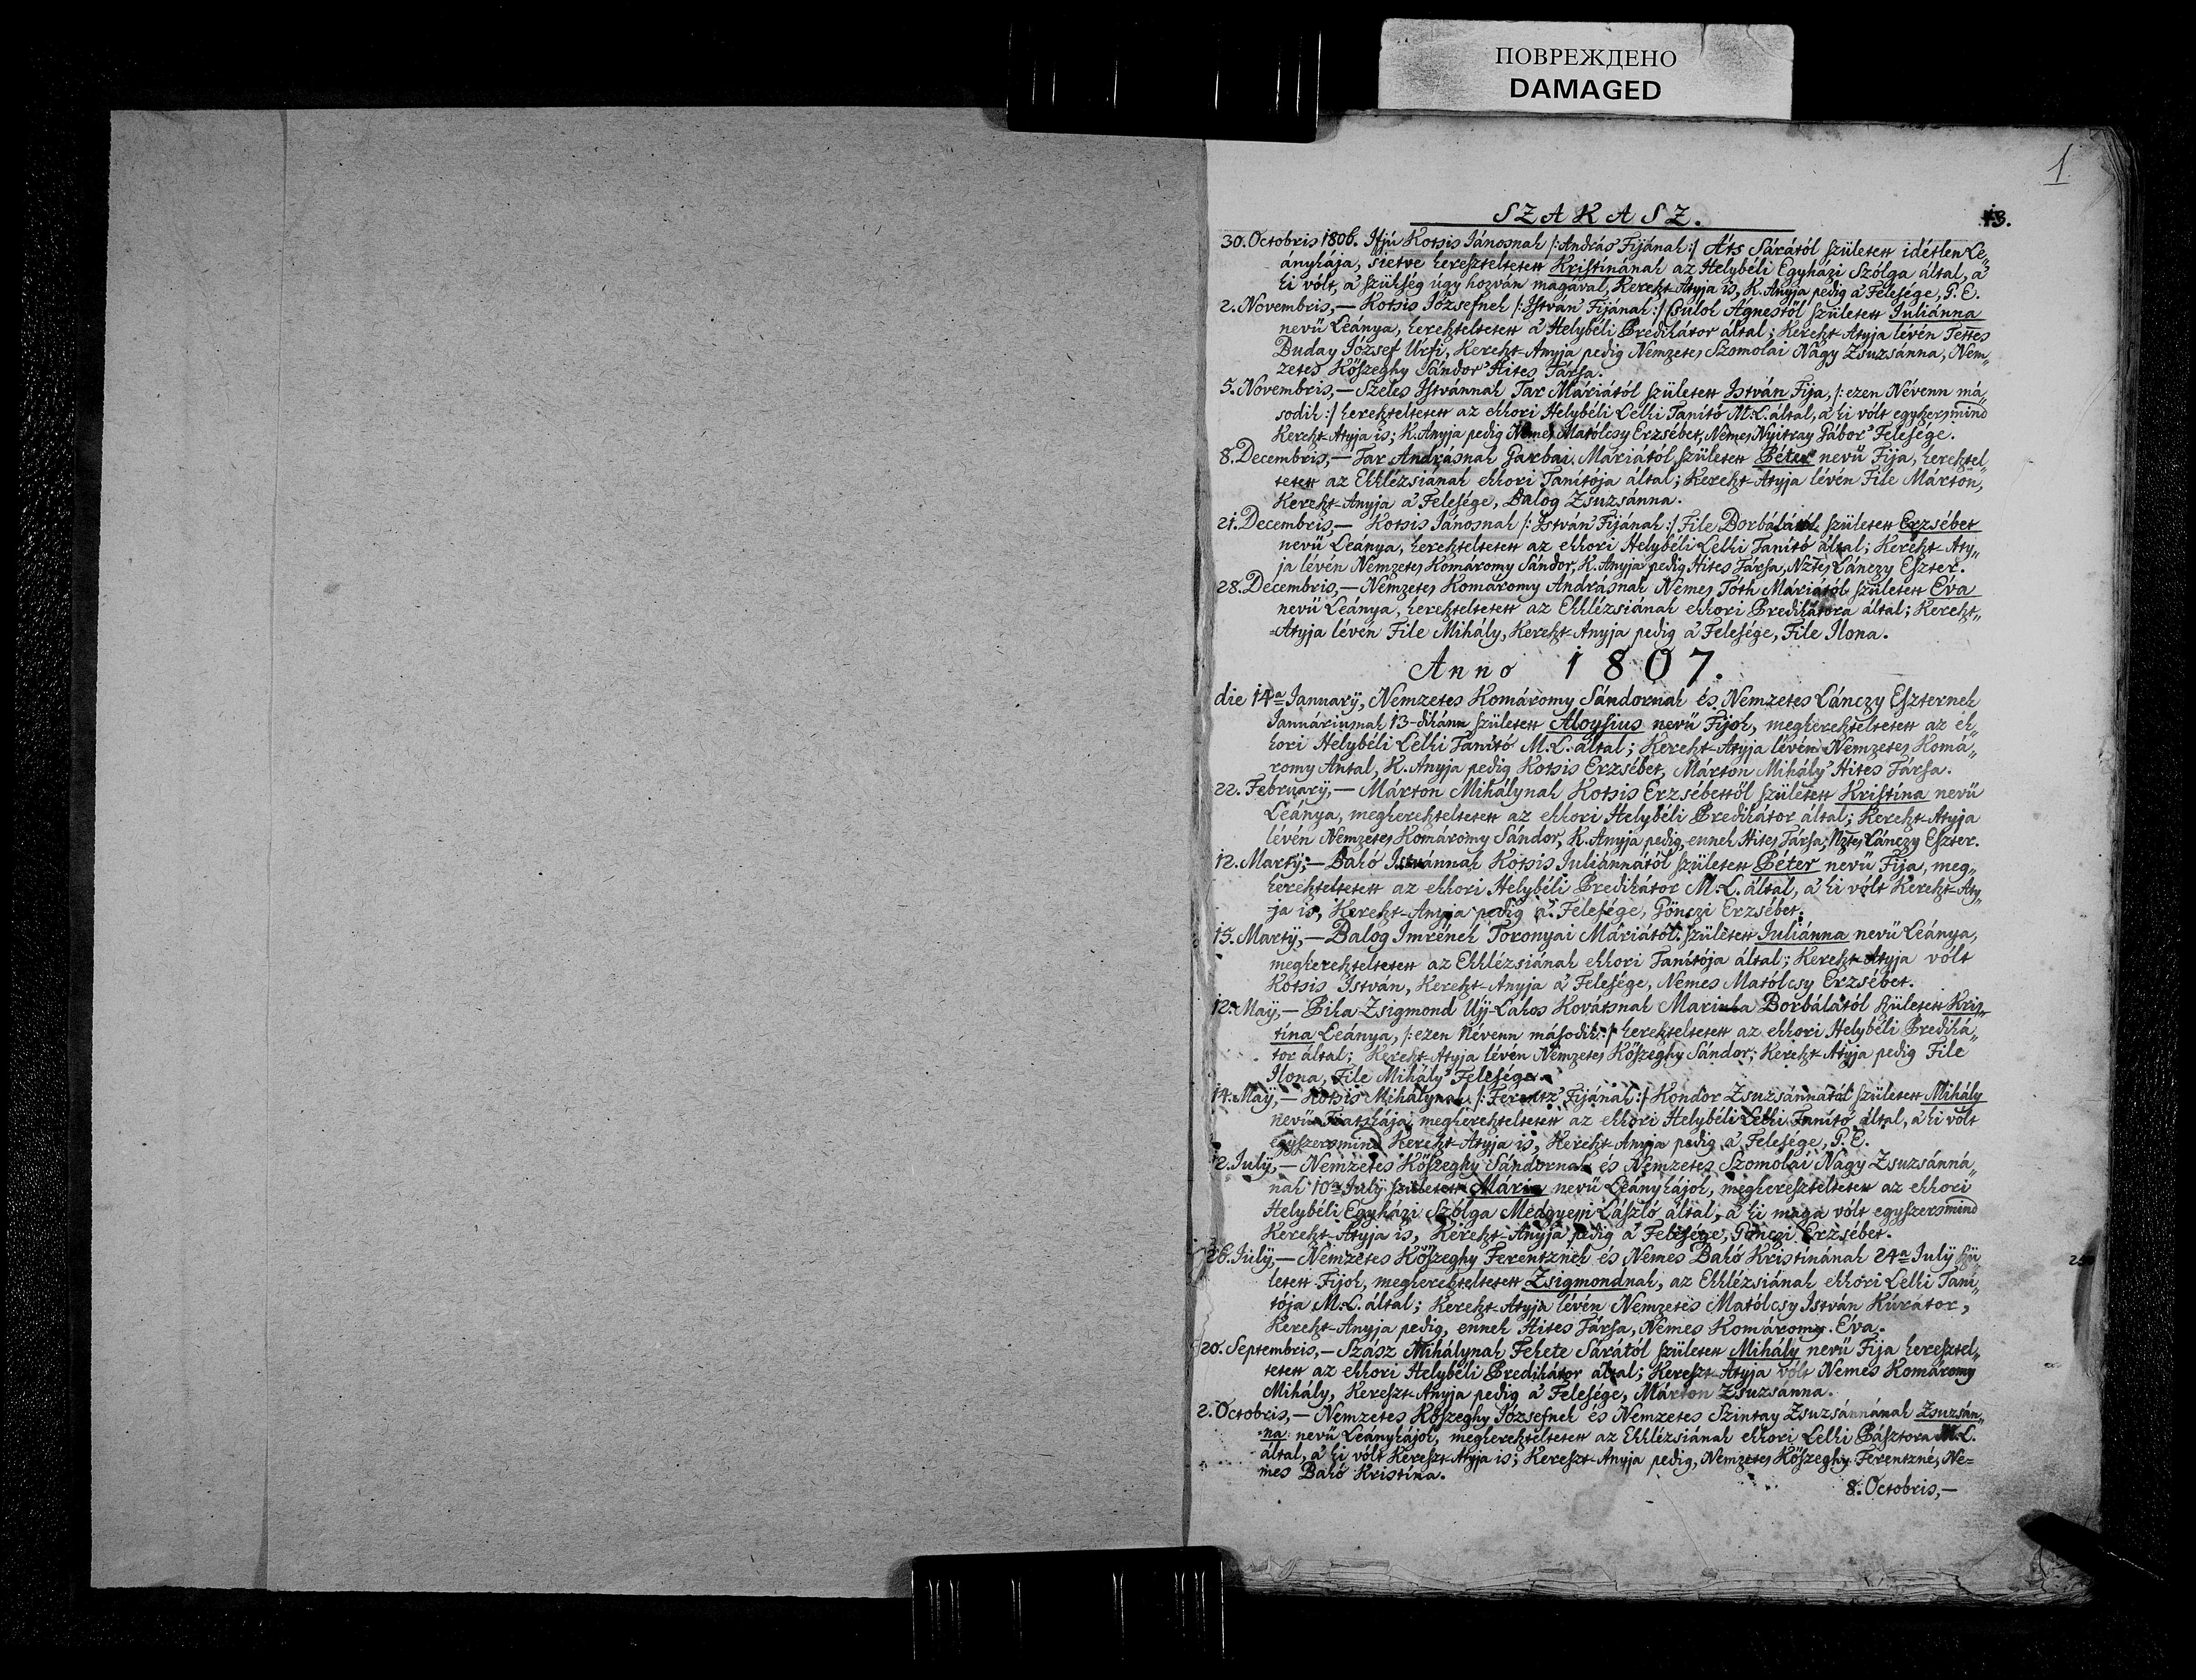 ПОВРЕЖДЕНО
DAMAGED
1
SZAKASZ.
13.
30. Octobris 1806. Ifjú Kotsis Jánosnak /: András' Fijának :/ Áts Sárától született idétlen Le„
ánykája, sietve kereszteltetett Kristínának az Helybéli Egyházi Szólga által, a'
ki vólt, a' szükség úgy hozván magával, Kereszt-Atyja is, K. Anyja pedig a' Felesége, G. E.
2. Novembris, — Kotsis Jósefnek /: István' Fijának :/ Csulok Ágnestől született Juliánna
nevű Leánya, kereszteltetett a' Helybéli Prédikátor által; Kereszt-Atyja lévén Tettes
Duday József Úrfi, Kereszt-Anyja pedig Nemzetes Szomolai Nagy Zsuzsánna, Nem„
zetes Kőszeghy Sándor' Hites Társa.
5. Novembris, — Szeles Istvánnak Tar Máriától született István Fija, /: ezen Névenn má„
sodik :/ kereszteltetett az ekkori Helybéli Lelki Tanító M. L. által, a' ki vólt egyszersmind
Kereszt-Atyja is; K. Anyja pedig Nemes Matólcsy Erzsébet, Nemes Nyitray Gábor' Felesége.
8. Decembris, — Tar Andrásnak Garbai Máriától született Péter nevű Fija, keresztel„
tetett az Ekklézsiának ekkori Tanítója által; Kereszt-Atyja lévén File Márton,
Kereszt-Anyja a' Felesége, Balog Zsuzsánna.
21. Decembris, — Kotsis Jánosnak /: István' Fijának :/ File Borbálától született Erzsébet
nevű Leánya, kereszteltetett az ekkori Helybéli Lelki Tanító által; Kereszt-Aty„
ja lévén Nemzetes Komáromy Sándor, K. Anyja pedig Hites Társa, Nztes Lánczy Eszter.
28. Decembris, — Nemzetes Komáromy Andrásnak Nemes Tóth Máriától született Éva
nevű Leánya, kereszteltetett az Ekklézsiának ekkori Prédikátora által; Kereszt„
=Atyja lévén File Mihály, Kereszt-Anyja pedig a' Felesége, File Ilona.
Anno 1807.
die 14a January, Nemzetes Komáromy Sándornak és Nemzetes Lánczy Eszternek
Januáriusnak 13-dikánn született Aloysius nevű Fijok, megkereszteltetett az ek„
kori Helybéli Lelki Tanító M. L. által; Kereszt-Atyja lévén Nemzetes Komá„
romy Antal, K. Anyja pedig Kotsis Erzsébet, Márton Mihály' Hites Társa.
22. February, — Márton Mihálynak Kotsis Erzsébettől született Kristína nevű
Leánya, megkereszteltetett az ekkori Helybéli Prédikátor által; Kereszt-Atyja
lévén Nemzetes Komáromy Sándor, K. Anyja pedig, ennek Hites Társa, Nztes Lánczy Eszter.
12. Marty, — Bakó Istvánnak Kotsis Juliánnától született Péter nevű Fija, meg„
kereszteltetett az ekkori Helybéli Prédikátor M. L. által, a' ki vólt Kereszt-Aty„
=ja is, Kereszt-Anyja pedig a' Felesége, Gönczi Erzsébet.
15. Marty, — Balog Imrének Toronyai Máriától született Juliánna nevű Leánya,
megkereszteltetett az Ekklézsiának ekkori Tanítója által; Kereszt-Atyja vólt
Kotsis István, Kereszt-Anyja a' Felesége, Nemes Matólcsy Erzsébet.
12. May, — Pika Zsigmond Uj-Lakos Kovátsnak Borbálától született Kris„
tína Leánya, /: ezen Névenn második :/ kereszteltetett az ekkori Helybéli Prédiká„
tor által; Kereszt-Atyja lévén Nemzetes Kőszeghy Sándor; Kereszt-Atyja pedig File
Ilona, File Mihály' Felesége.
14. May, — Kotsis Mihálynak /: Ferentz' Fijának :/ Kondor Zsuzsánnától született Mihály
nevű Fiatskája, megkereszteltetett az ekkori Helybéli Lelki Tanító által, a' ki vólt
egyszersmind Kereszt-Atyja is, Kereszt-Anyja pedig a' Felesége, G. E.
July, — Nemzetes Kőszeghy Sándornak és Nemzetes Szomolai Nagy Zsuzsánná„
nak 10a July született Mária nevű Leánykájok, megkereszteltetett az ekkori
Helybéli Egyházi Szólga Medgyessi László által, a' ki maga vólt egyszersmind
Kereszt-Atyja is, Kereszt-Anyja pedig a' Felesége, Gönczi Erzsébet.
26. July, — Nemzetes Kőszeghy Ferentznek és Nemes Bakó Kristínának 24a July szü„
letett Fijok, megkereszteltetett Zsigmondnak, az Ekklézsiának ekkori Lelki Taní„
tója M. L. által; Kereszt-Atyja lévén Nemzetes Matólcsy István Kúrátor,
Kereszt-Anyja pedig, ennek Hites Társa, Nemes Komáromy Éva.
20. Septembris, — Szász Mihálynak Fekete Sárától született Mihály nevű Fija keresztel„
tetett az ekkori Helybéli Prédikátor által; Kereszt-Atyja vólt Nemes Komáromy
Mihály, Kereszt-Anyja pedig a' Felesége, Márton Zsuzsánna.
2. Octobris, — Nemzetes Kőszeghy Jósefnek és Nemzetes Szintay Zsuzsánnának Zsuzsán„
=na nevű Leánykájok, megkereszteltetett az Ekklézsiának ekkori Lelki Pásztora M. L.
által, a' ki vólt Kereszt-Atyja is; Kereszt-Anyja pedig, Nemzetes Kőszeghy Ferentzné, Ne=
mes Bakó Kristína.
8. Octobris, —